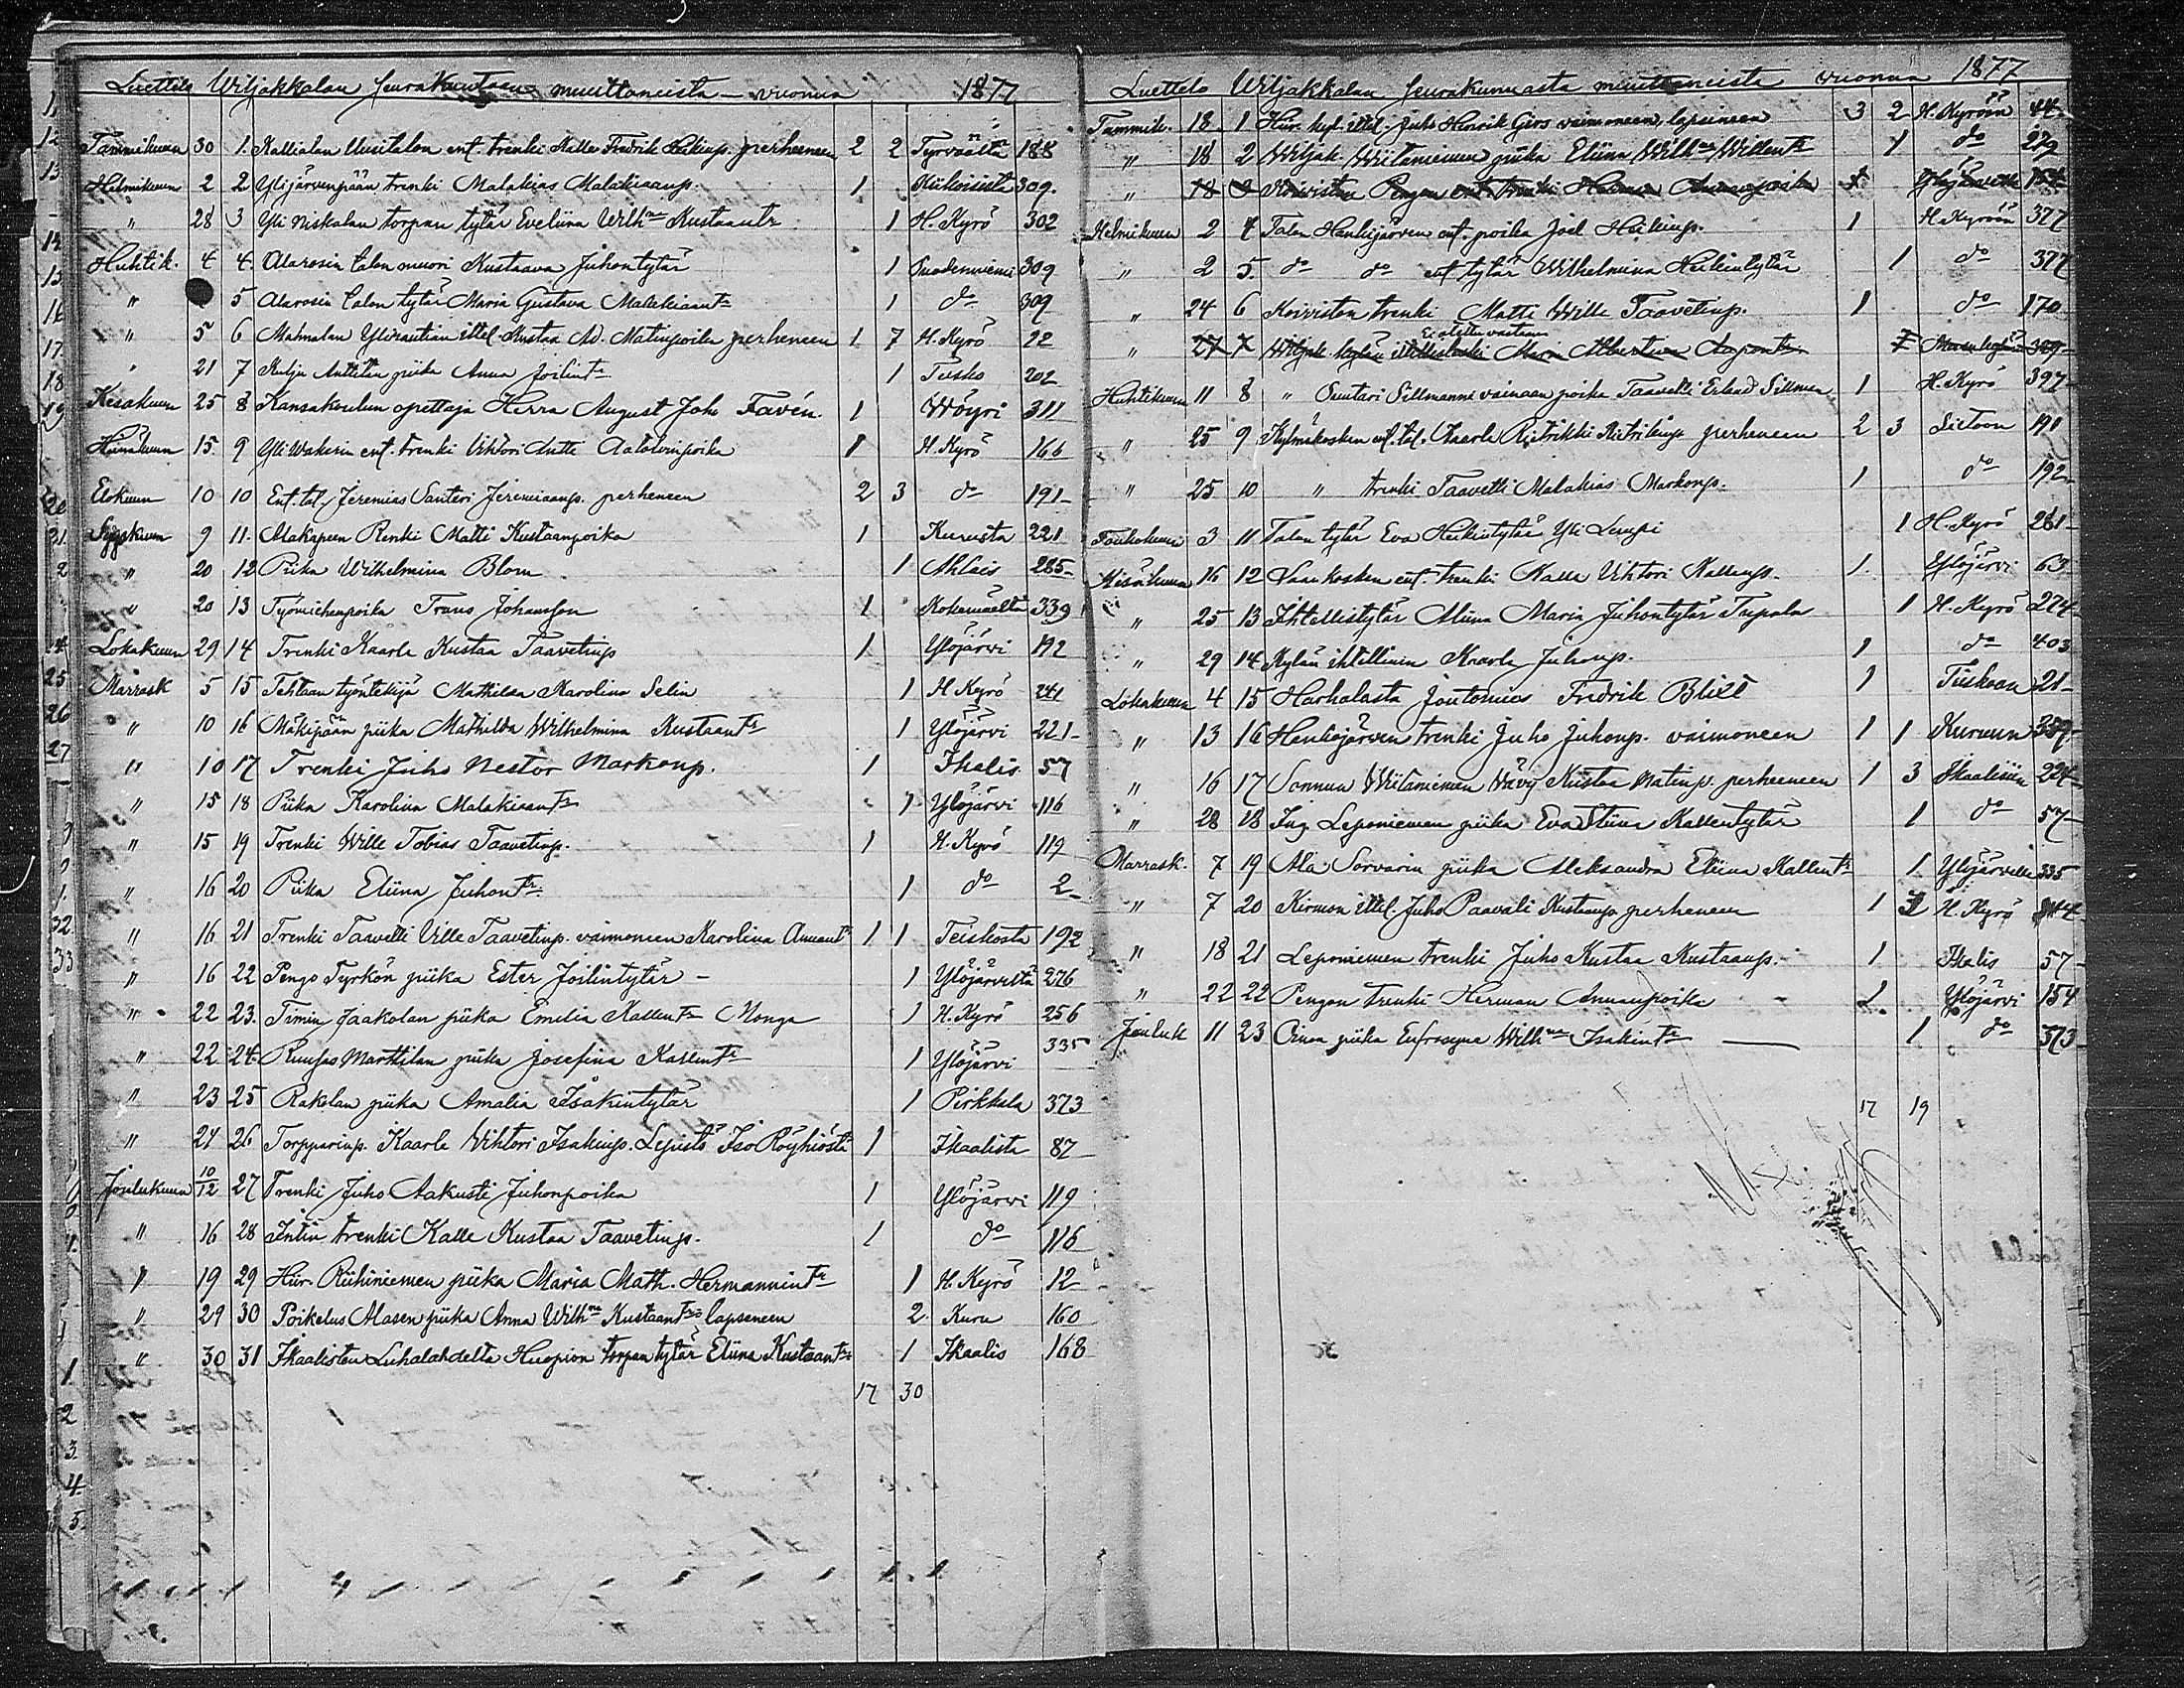 Luettelo Wiljakkalan Seurakuntaan muuttaneista vuonna 1877
Tammikuun 30 1. Kallialan Uusitalon ent. trenki Kalle Fredrik Heikinp. perheeneen 2 2 Tyrväältä 188
Helmikuun 2 2 Ylijärvenpään trenki Malakias Malakiaanp. 1 309.
" 28 3 Yli Niskalan torpan tytär Eveliina Wilhna Kustaantr 1 H. Kyrö 302
Huhtik. 4 4. Alarosin talon muori Kustaava Juhontytär 1 Suodenniemi 309
" 5 Alarosin talon tytär Maria Gustava Malakiaantr 1 do 309
" 5 6 Mahnalan Ylirautian ittel. Kustaa Ad. Matinpoika perheneen 1 7 H. Kyrö 22
" 21 7 Kulju Anttilan piika Anna Joilintr 1 Teisko 202
Kesäkuun 25 8 Kansakoulun opettaja Herra August Joh. Favén. 1 Wöyri 311
Heinäkuun 15. 9 Yli Wakerin ent. trenki Vihtori Antti Aatolvinpoika 1 H. Kyrö 166
Elokuun 10 10 Ent. tal. Jeremias Santeri Jeremiaanp. perheneen 2 3 do 191
Syyskuun 9 11. Alakapeen Renki Matti Kustaanpoika 1 Kurusta 221
" 20 12 Piika Wilhelmina Blom 1 Ahlais 285
" 20 13 Työmiehenpoika Frans Johansson 1 Kokemäeltä 339
Lokakuun 29 14 Trenki Kaarle Kustaa Taavetinp 1 Ylöjärvi 192
Marrask 5 15 Tehtaan työntekijä Mathilda Karolina Selin 1 H Kyrö 241
" 10 16 Mäkipään piika Mathilda Wilhelmina Kustaantr 1 Ylöjärvi 221
" 10 17 Trenki Juho Nestor Markonp. 1 Ikalis 57
" 15 18 Piika Karolina Malakiaantr 1 Ylöjärvi 116
" 15 19 Trenki Wille Tobias Taavetinp. 1 H. Kyrö 119
" 16 20 Piika Eliina Juhontr. 1 do 2
" 16 21 Trenki Taavetti Ville Taavetinp. vaimoneen Karolina Annantr 1 1 Teiskosta 192
" 16 22 Pengo Tyrkön piika Ester Joilintytär - 1 Ylöjärveltä 276
" 22 23. Timin Jaakolan piika Emilia Kallentr Monga 1 H. Kyrö 256
" 22 24. Marttilan piika Josefina Kallentr 1 Ylöjärvi 335
" 23 25 Rakolan piika Amalia Isakintytär 1 Pirkkala 373
" 27 26 Torpparinp. Kaarle Wihtori Isakinp. Lepistö Iso Röyhiöstä 1 Ikaalista 87
Joulukuun 10/12 27 Trenki Juho Aakusti Juhonpoika 1 Ylöjärvi 119
" 16 28 Intin trenki Kalle Kustaa Taavetinp. 1 do 116
" 19 29 Hiir. Riihiniemen piika Maria Math. Hermannintr 1 H. Kyrö 12
" 29 30 Poikelus Alasen piika Anna Wilhna Kustaantr lapseneen 2. Kuru 160
" 30 31 Ikaalisten Luhalahdelta Huopion torpan tytär Eliina Kustaantr 1 Ikaalis 168
17 30
Luettelo Wiljakkalan Seurakunnasta muuttaneista vuonna 1877
Tammik. 18. 1 Hiir. kyl. ittel. Juho Henrik Girs vaimoneen, lapsineen 3 2 H. Kyröön 44.
" 18 2 Wiljak. Wiitaniemen piika Eliina Wilhna Willentr 1 do 279
" 18 3 Koivistan Pengon ent. trenki Herman Annanpoika 1 Ylöjärvelle 154
Helmikuun 2 4 Talon Hankijärven ent. poika Joel Heikinp. 1 H. Kyröön 377
" 2 5. do do ent tytär Wilhelmina Heikintytär 1 do 377
" 24 6 Koiviston trenki Matti Wille Taavetinp. 1 do 170
Ei otettu vastaan
" 27 7 Wiljak. kylän itellisleski Maria Albertina 1 309
Huhtikuun 11 8 " Suutari Sillmanni vainaan poika Taavetti Erland Sillman 1 H. Kyrö 397
" 25 9 Kylmäkosken ent. tal. Kaarle Rietrikki Rietrikinp perheneen 2 3 Sietoon 191
" 25 10 " trenki Taavetti Malakias Markonp. 1 do 192
Toukokuun 3 11 Talon tytär Eva Heikintytär Yli Lempi 1 H. Kyrö 261
16 12 Laukosken ent. trenki Kalle Vihtori Kallenp. 1. Ylöjärvi 63
" 25 13 Ihtellistytär Miina Maria Juhontytär Tupala 1 H. Kyrö 274
" 29 14 Kylän ihtellinen Kaarle Juhonp. 1 do 403
Lokakuun 4 15 Harhalasta Joutomies Fredrik Blixt 1 Tiiskoon 21
" 13 16 Hankijärven trenki Juho Juhonp. vaimoneen 1 1 Kuruun 359
" 16 17 Sonnun Wiitaniemen Wävy Kustaa Matinp. perheeneen 1 3 Ikaalisiin 224
" 28 18 Ing. Leponiemen piika Eva Stiina Kallentytär 1 do 57
Marrask. 7 19 Ala Sorvarin piika Aleksandra Eliina Kallentr 1 Ylöjärvelle 335
" 7 20 Kirmon ittel. Juho Paavali Kustaanp perheneen 1 3 H. Kyrö
" 18 21 Leponiemen trenki Juho Kustaa Kustaanp. 1 Ikalis 57
" 22 22 Pengon trenki Herman Annanpoika 1. Ylöjärvi 154
Jouluk 11 23 Oinon piika Eufrosyne Wilhna Isakintr 1 do 373
17 19